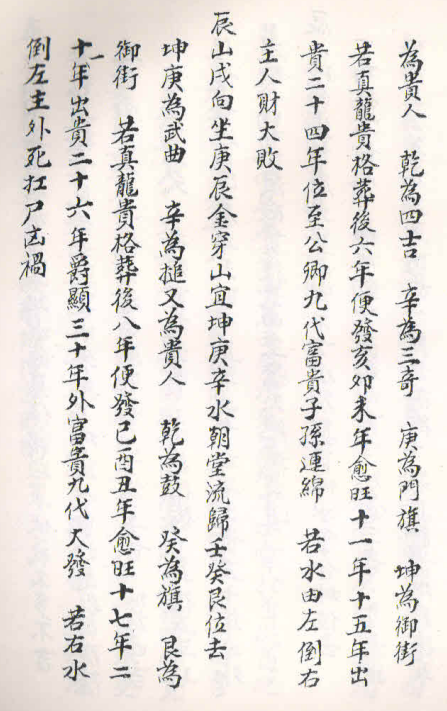 為貴人　乾為四吉　辛為三奇　庚為門旗　坤為御街
若真龍貴格葬後六年便發亥卯未年愈旺十一年十五年出
貴二十四年位至公卿九代富貴子孫連綿　若水由左倒右
主人財大敗
辰山戌向坐庚辰金穿山宜坤庚辛水朝堂流歸壬癸艮位去
坤庚為武曲　辛為搥又為貴人　乾為鼓　癸為旗　艮為
御街　若真龍貴格葬後八年便發巳酉丑年愈旺十七年二
十一年出貴二十六年爵顯三十年外富貴九代大發　若右水
倒左主外死扛尸凶禍